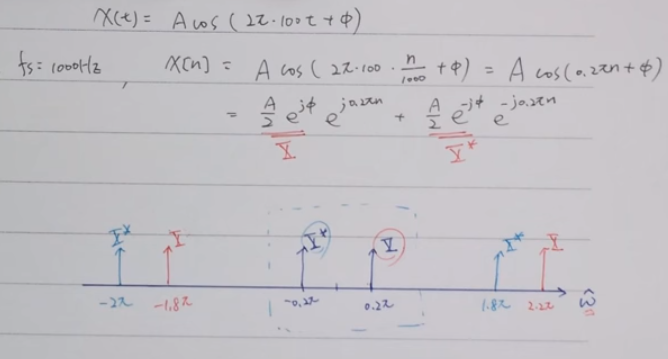 X(t) = A cos ( 2π·100t + ϕ )
fs = 1000Hz , X[n] = A cos ( 2π·100 · n/1000 + ϕ ) = A cos(0.2πn + ϕ)
= A/2 e^{jϕ} e^{j0.2πn} + A/2 e^{-jϕ} e^{-j0.2πn}
X X*
X* X X* X X* X
-2π -1.8π -0.2π 0.2π 1.8π 2.2π ω̂